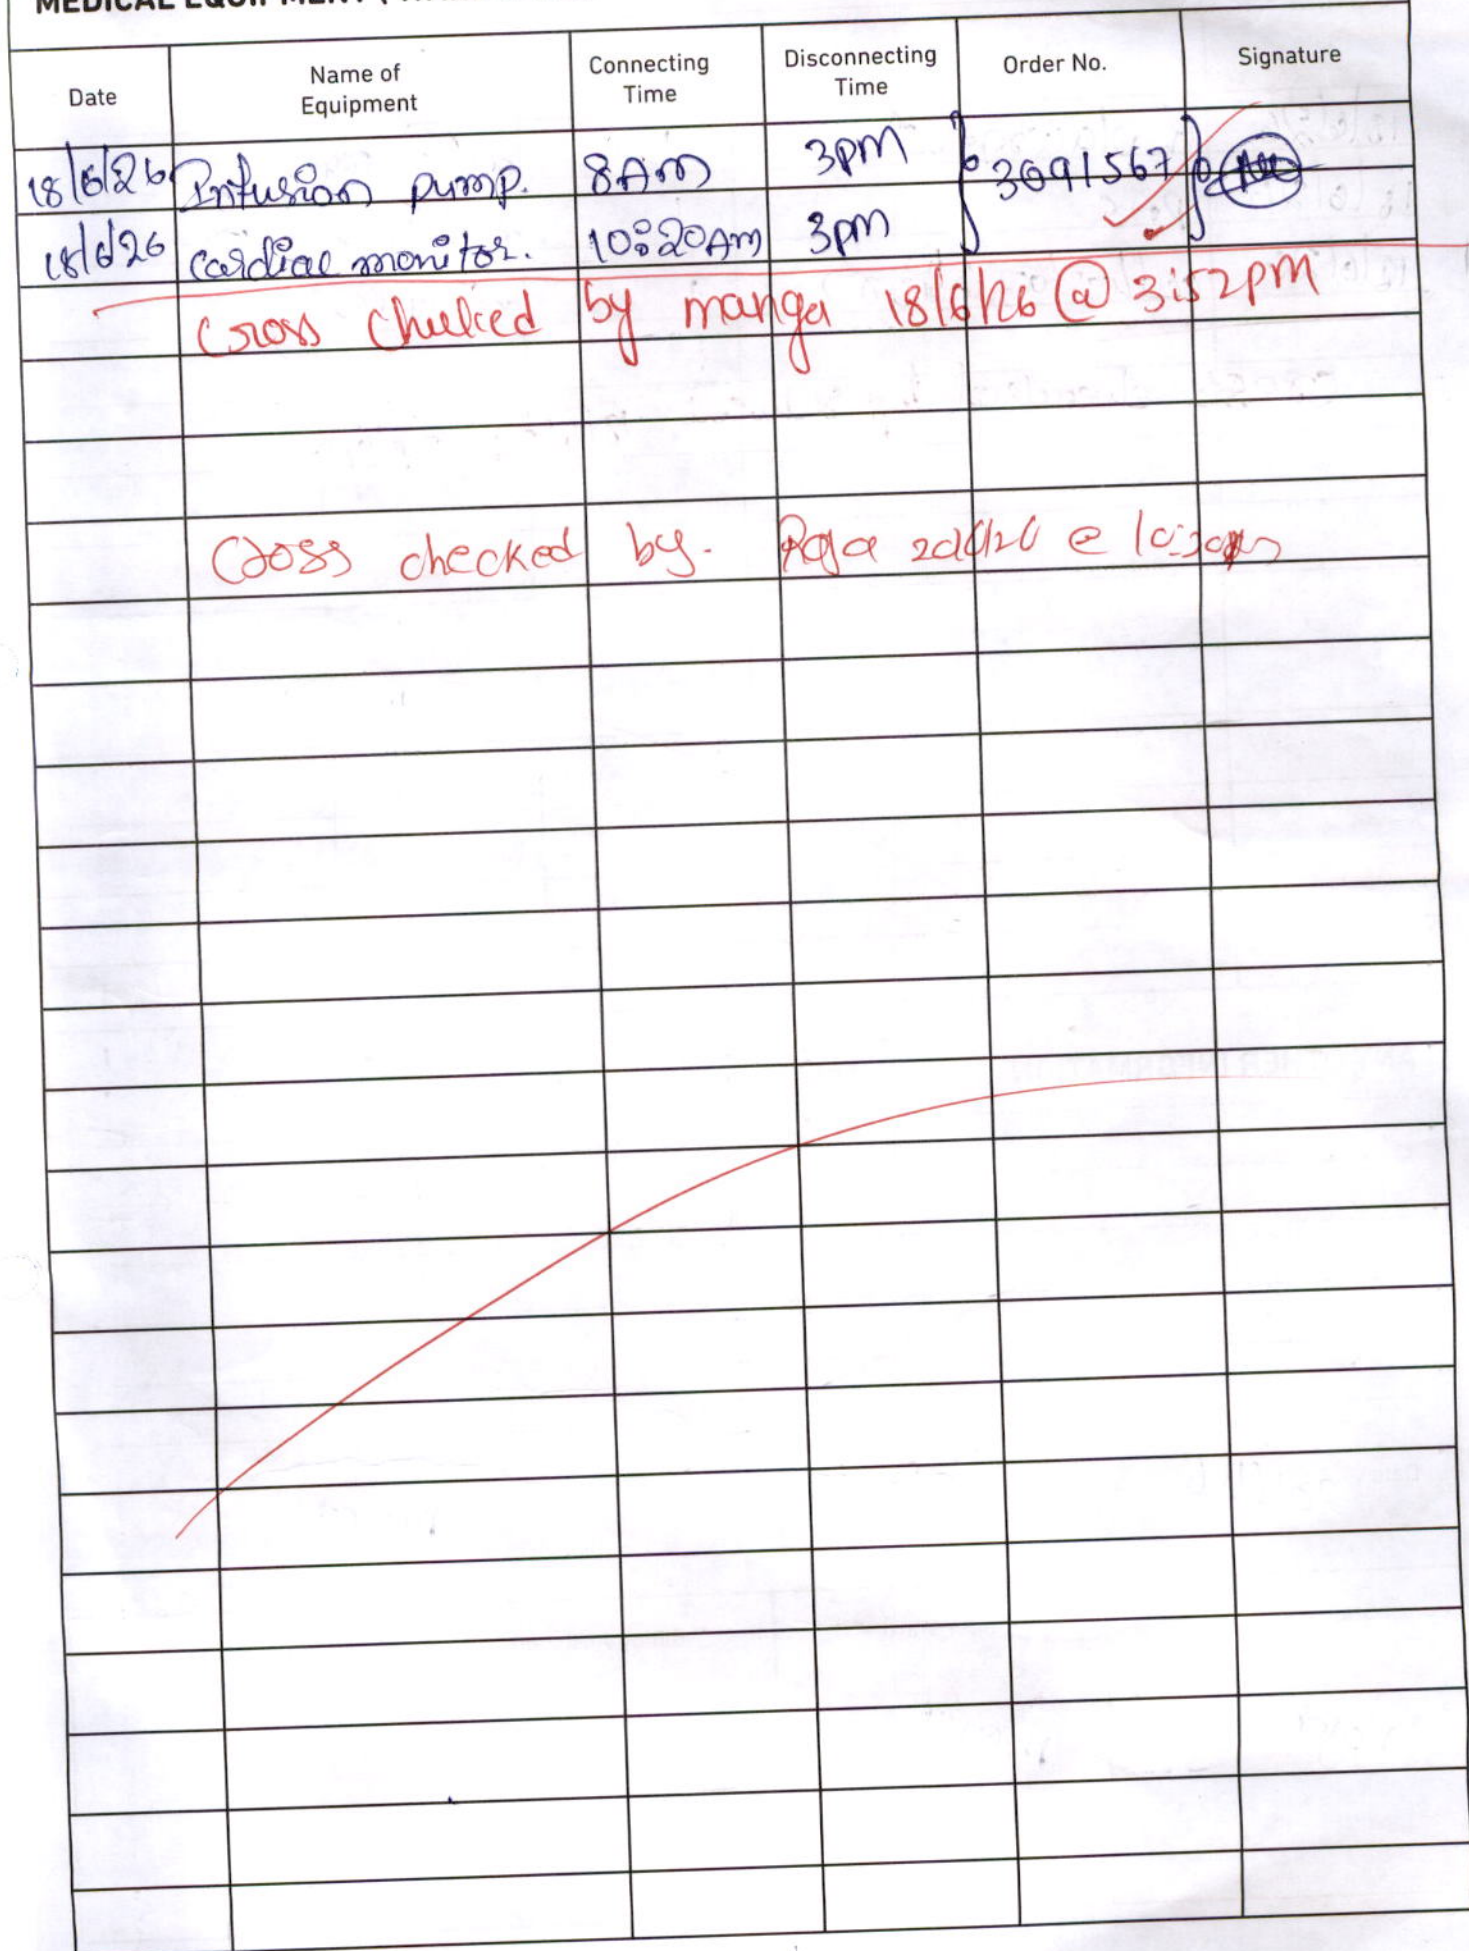 MEDICAL EQUIPMENT (
Date Name of Equipment Connecting Time Disconnecting Time Order No. Signature
18/6/26 Infusion pump. 8Am 3pm 3091567
18/6/26 cardiac monitor. 10:20Am 3pm
Cross Checked by manga 18/6/26 @ 3:52pm
Cross checked by.